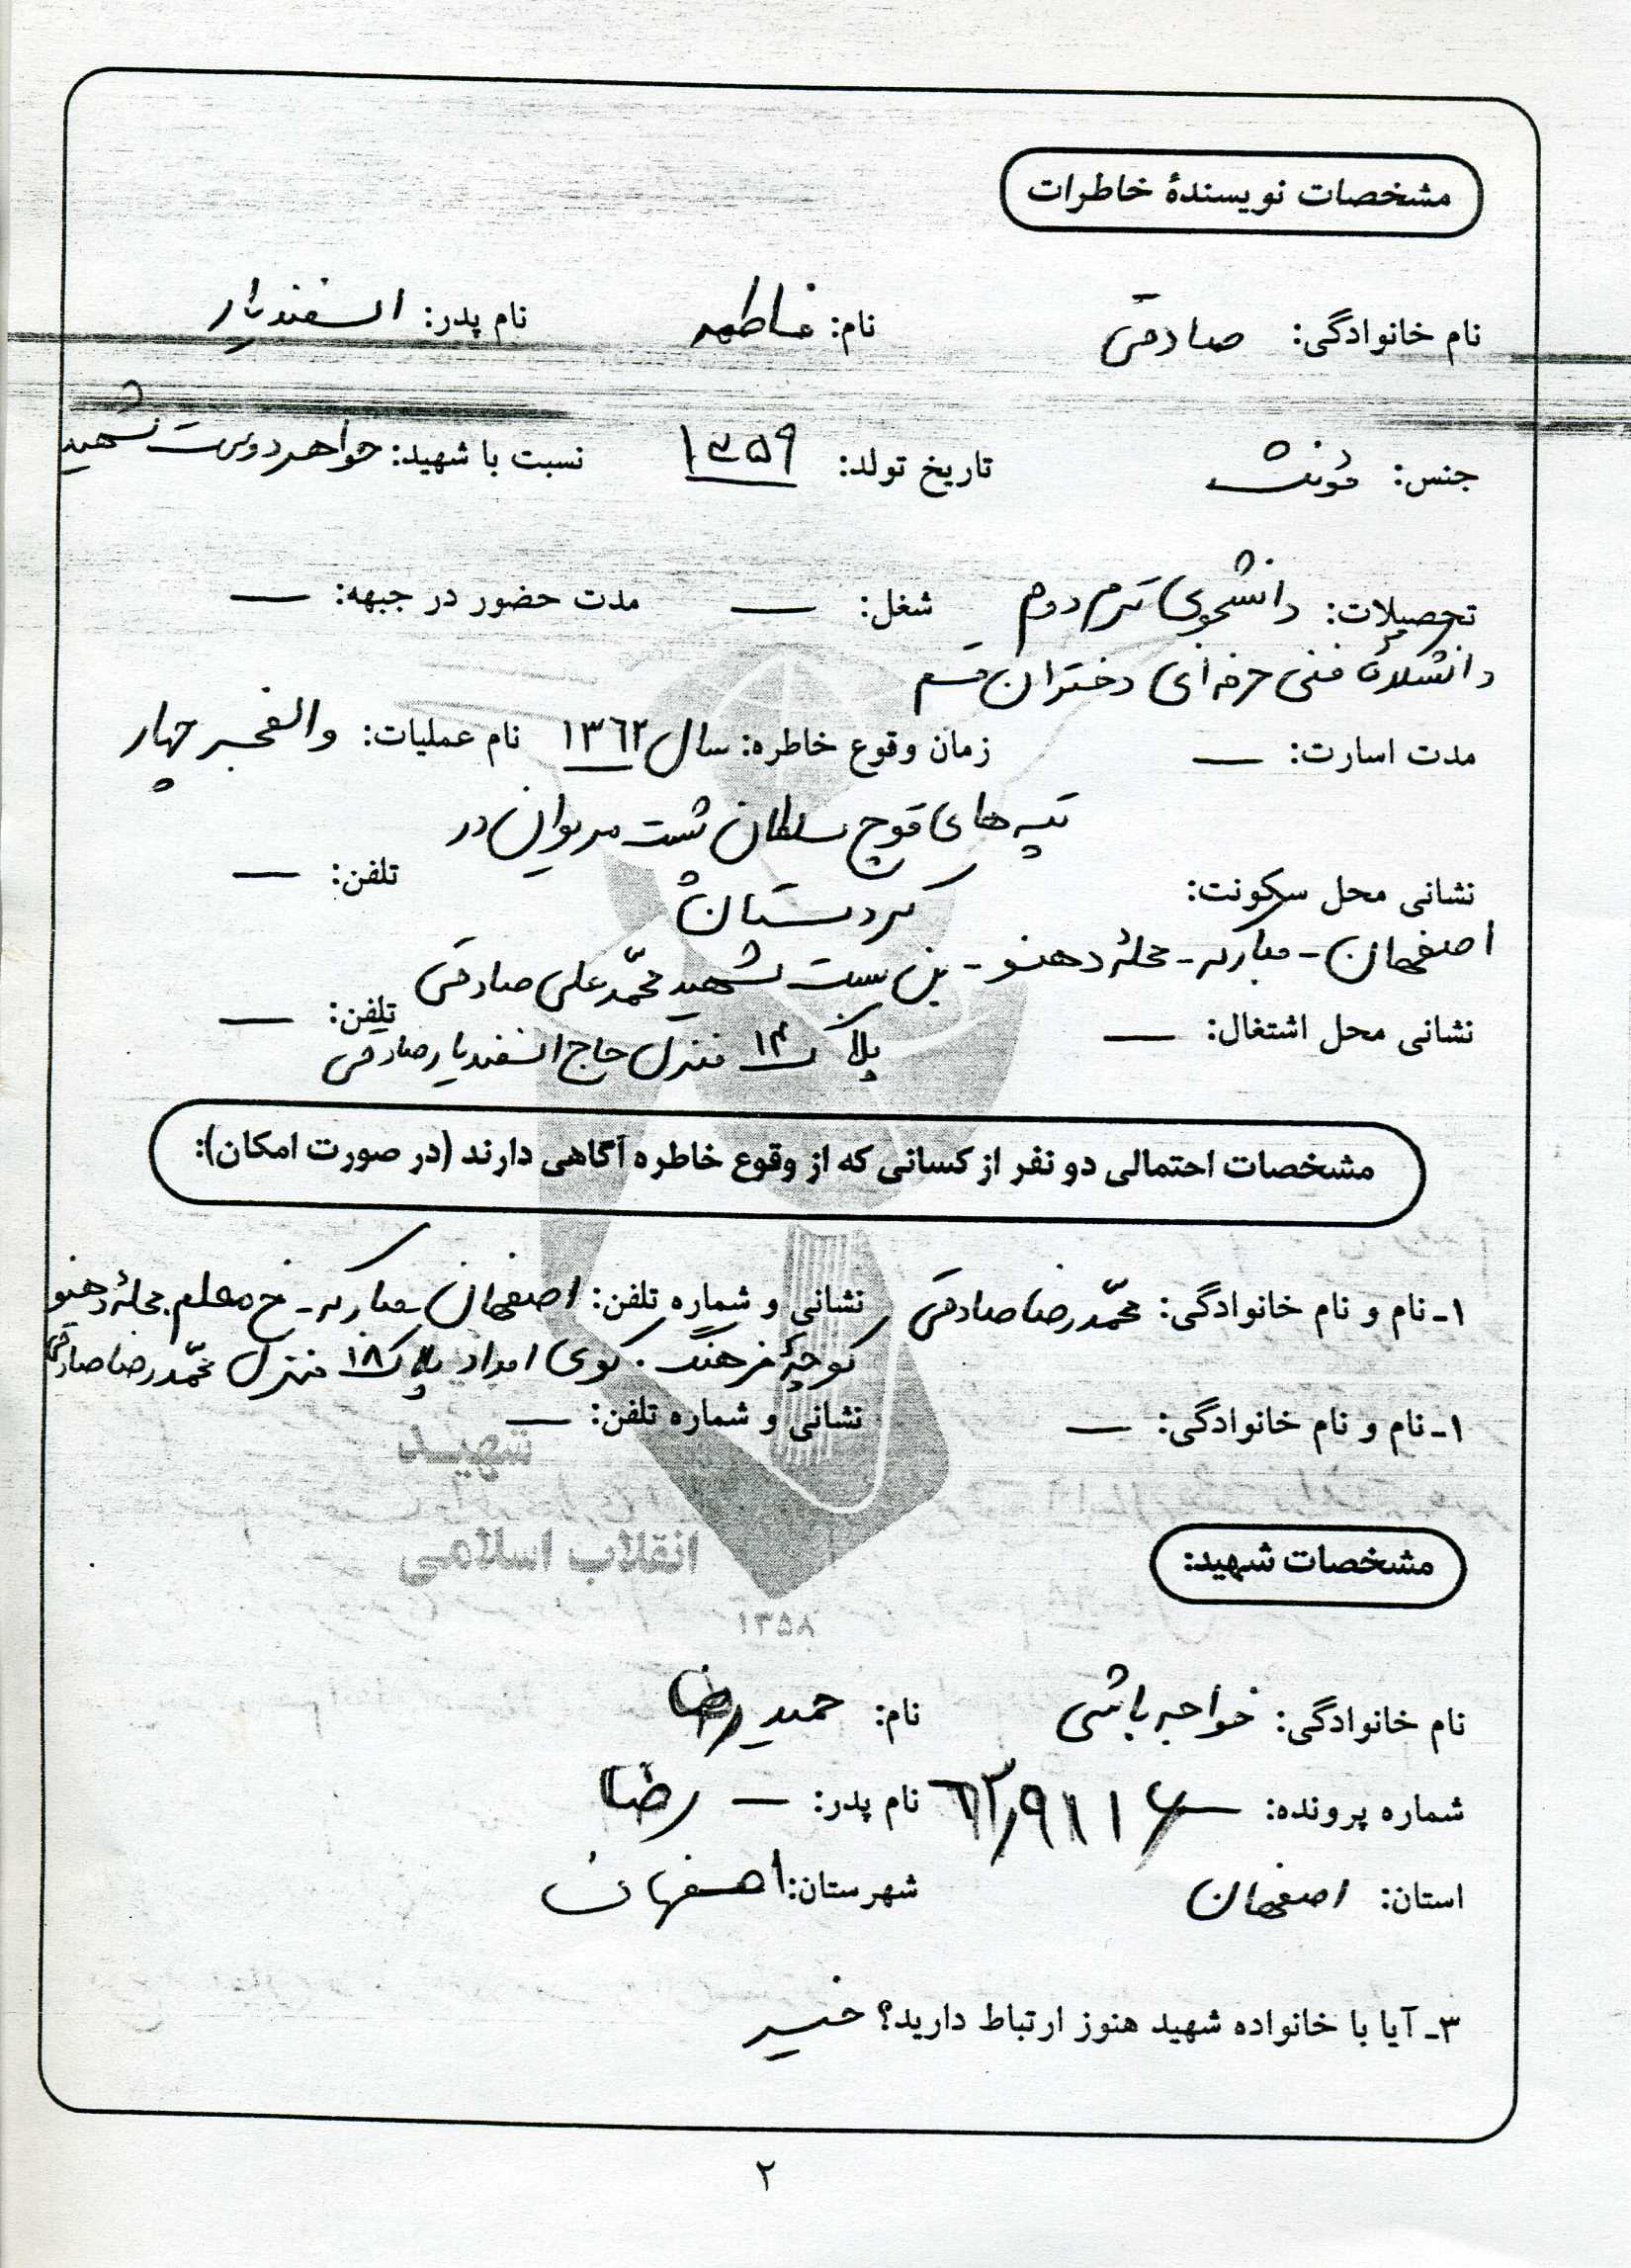 مشخصات نویسندهٔ خاطرات
نام خانوادگی: صادقی نام: فاطمه نام پدر: اسفندیار
جنس: مؤنث تاریخ تولد: ۱۳۵۹ نسبت با شهید: خواهر دوست شهید
تحصیلات: دانشجوی ترم دوم شغل: — مدت حضور در جبهه: —
دانشکدهٔ فنی حرفه‌ای دختران قم
مدت اسارت: — زمان وقوع خاطره: سال ۱۳۶۲ نام عملیات: والفجر چهار
تپه‌های قوچ سلطان دشت مریوان در
نشانی محل سکونت: کردستان تلفن: —
اصفهان - مبارکه - محلهٔ دهنو - بن بست شهید محمّدعلی صادقی
نشانی محل اشتغال: — تلفن: —
پلاک ۱۴ منزل حاج اسفندیار صادقی
مشخصات احتمالی دو نفر از کسانی که از وقوع خاطره آگاهی دارند (در صورت امکان):
۱ـ نام و نام خانوادگی: محمّدرضا صادقی نشانی و شماره تلفن: اصفهان - مبارکه - خ معلم. محلهٔ دهنو
کوچهٔ فرهنگ. کوی امداد پلاک ۱۸ منزل محمّدرضا صادقی
۱ـ نام و نام خانوادگی: — نشانی و شماره تلفن: —
شهید
انقلاب اسلامی
۱۳۵۸
مشخصات شهید:
نام خانوادگی: خواجه باشی نام: حمیدرضا
شماره پرونده: — نام پدر: — رضا
استان: اصفهان شهرستان: اصفهان
۳ـ آیا با خانواده شهید هنوز ارتباط دارید؟ خیر
۲